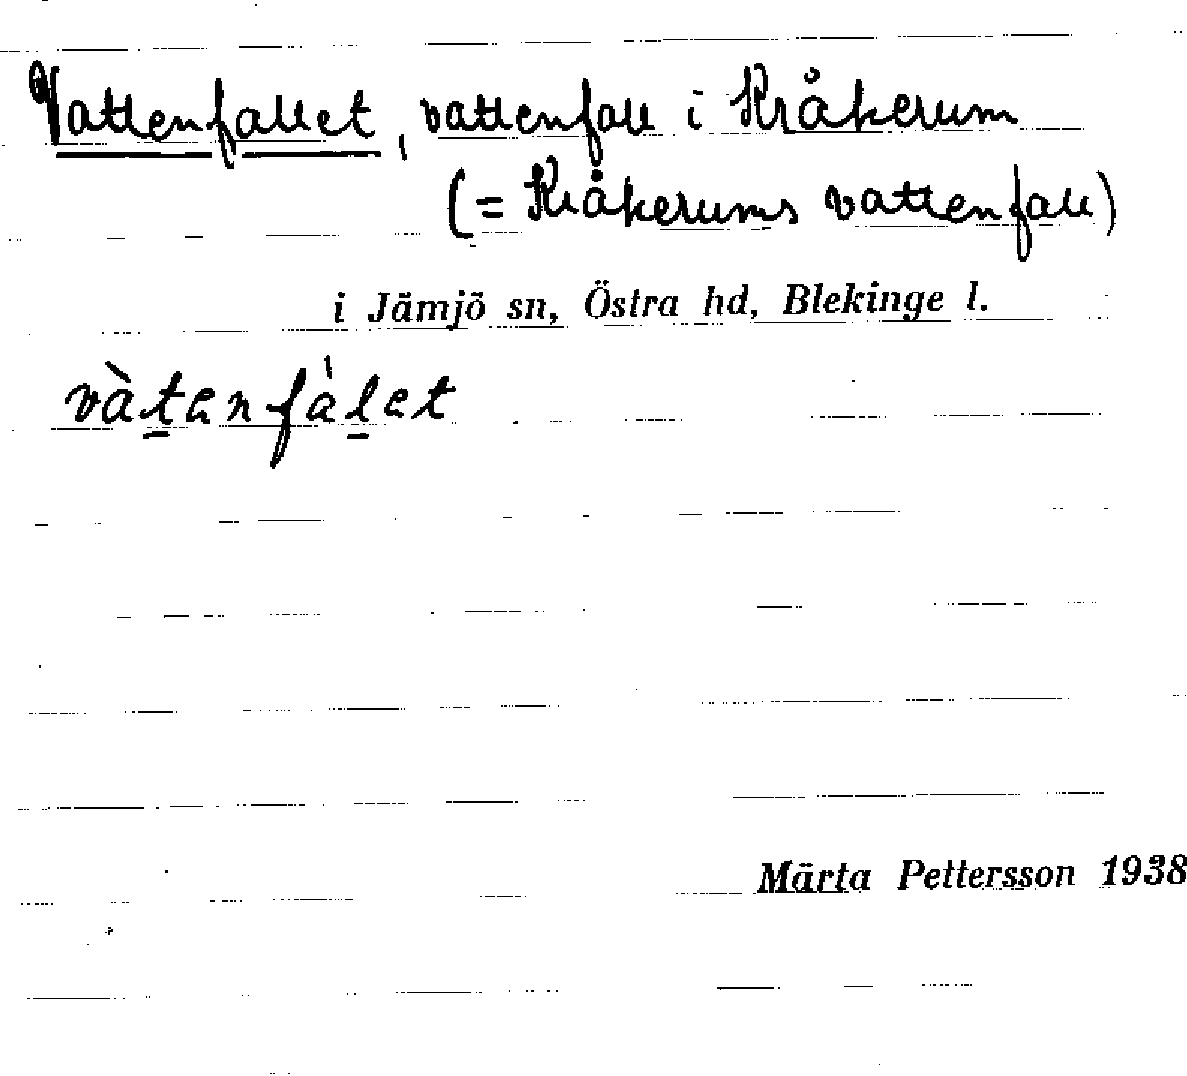 Vattenfallet, vattenfall i Kråkerum
(= Kråkerums vattenfall)
i Jämjö sn, Östra hd, Blekinge l.
vàt̲enfàl̲et
Märta Pettersson 1938